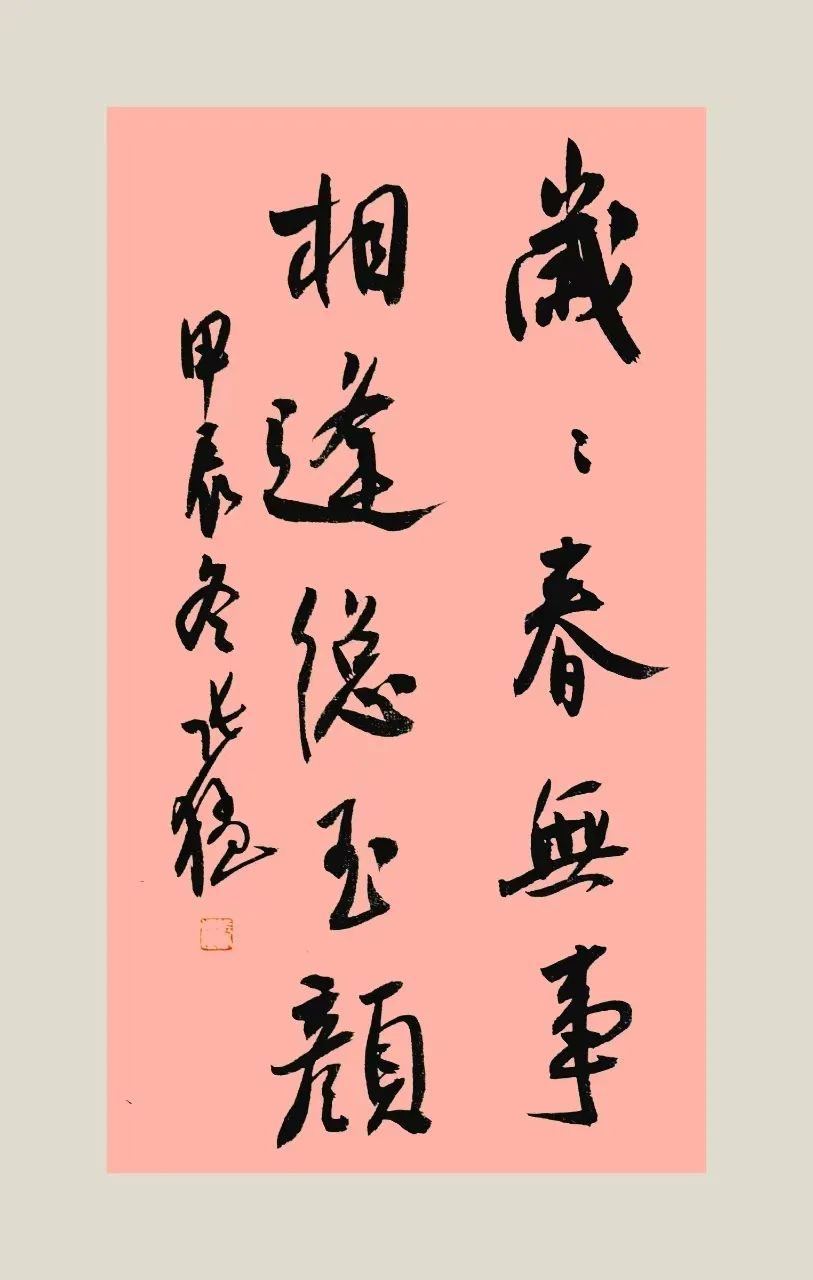 歲〻春無事
相逢總玉顏
甲辰冬張猛